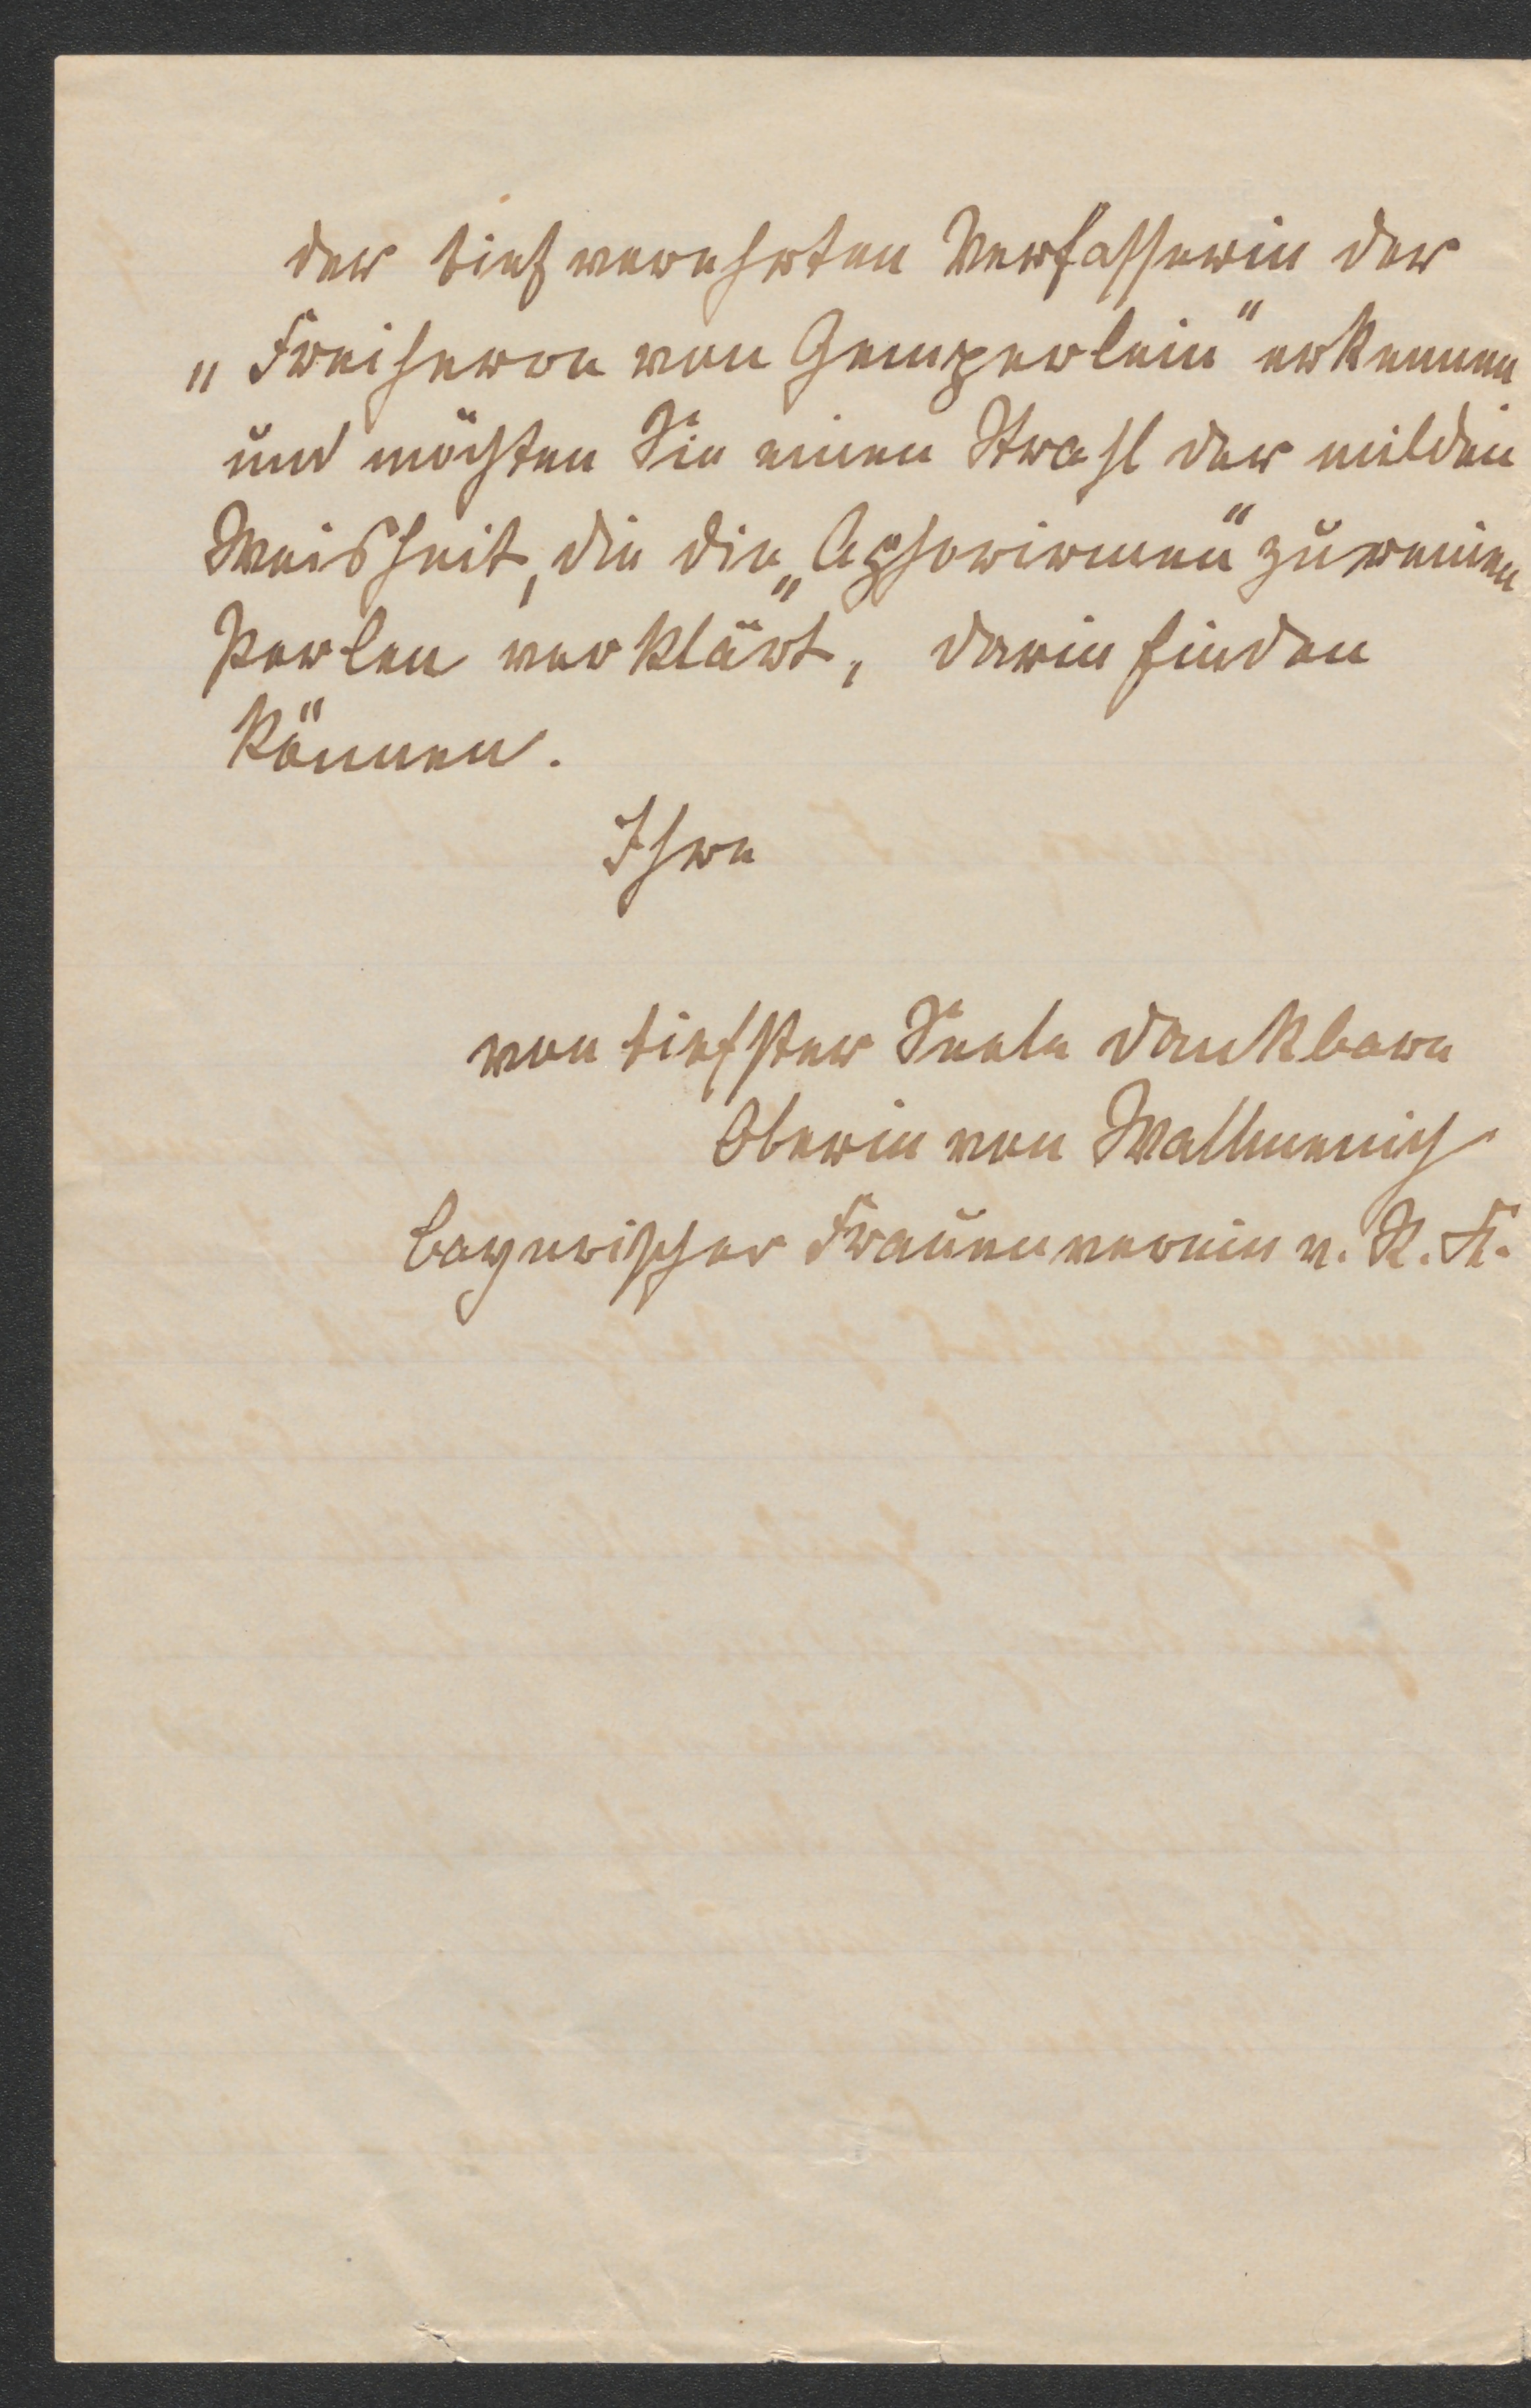 der tief verehrten Verfasserin der
„Freiherrn von Gemperlein" erkennen
und möchten Sie einen Strahl der milden
Weisheit, die die „Aphorismen" zu reinen
Perlen verklärt, darin finden
können.
Ihre
von tiefster Seele dankbare
Oberin von Wallmenich
bayerischer Frauenverein v. R. K.